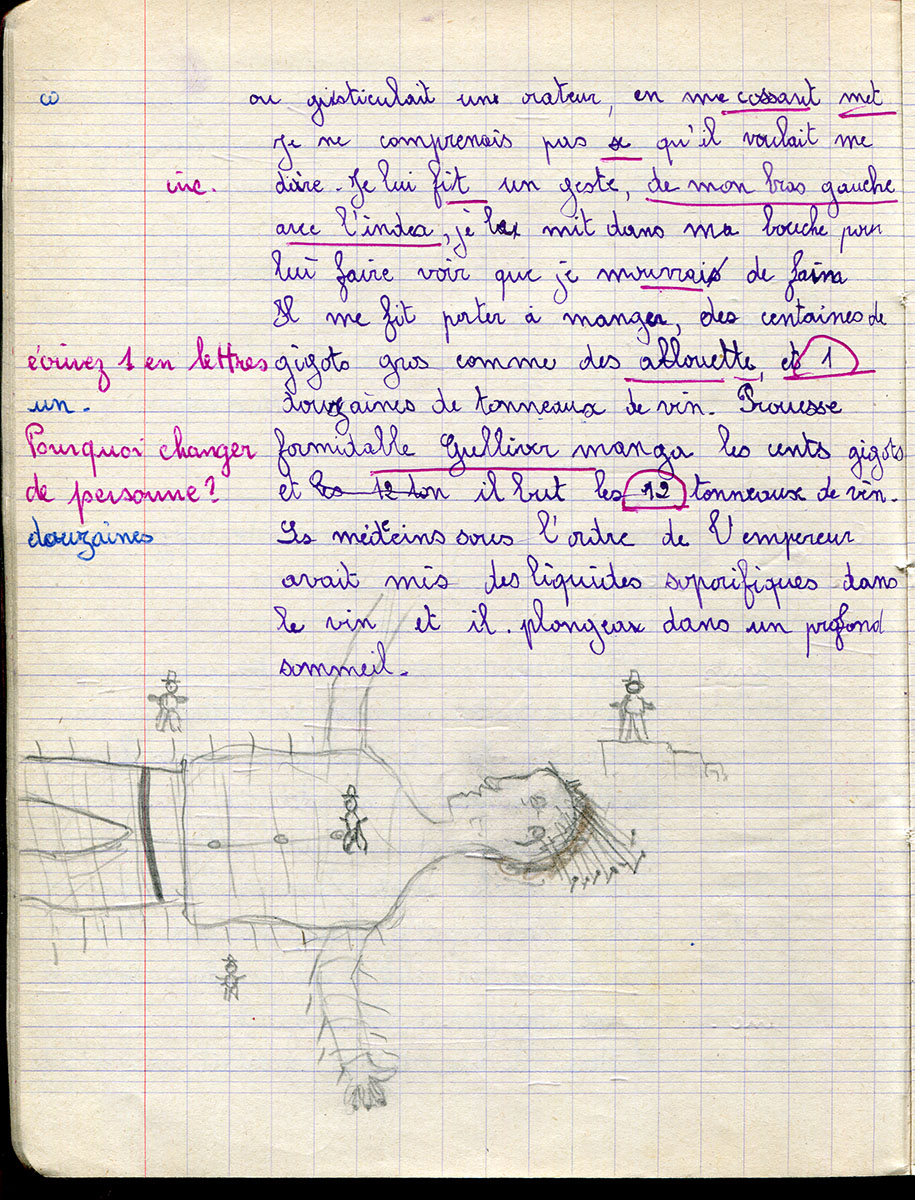 ω ou gisticulait une orateur, en me cassant met
Je ne comprenais pas se qu'il voulait me
inc. dire. Je lui fit un geste, de mon bras gauche
avec l'index, je mit dans ma bouche pour
lui faire voir que je mouvrais de faim
Il me fit porter à manger, des centaines de
écrivez 1 en lettres gigots gros comme des allouette, et 1
un. douzaines de tonneaux de vin. Prouesse
Pourquoi changer formidable Gulliver manga les cents gigots
de personne? et les 12 ton il but les 12 tonneaux de vin.
douzaines Les médecins sous l'ordre de l'empereur
avait mis des liquides soporifiques dans
le vin et il. plongeax dans un profond
sommeil.